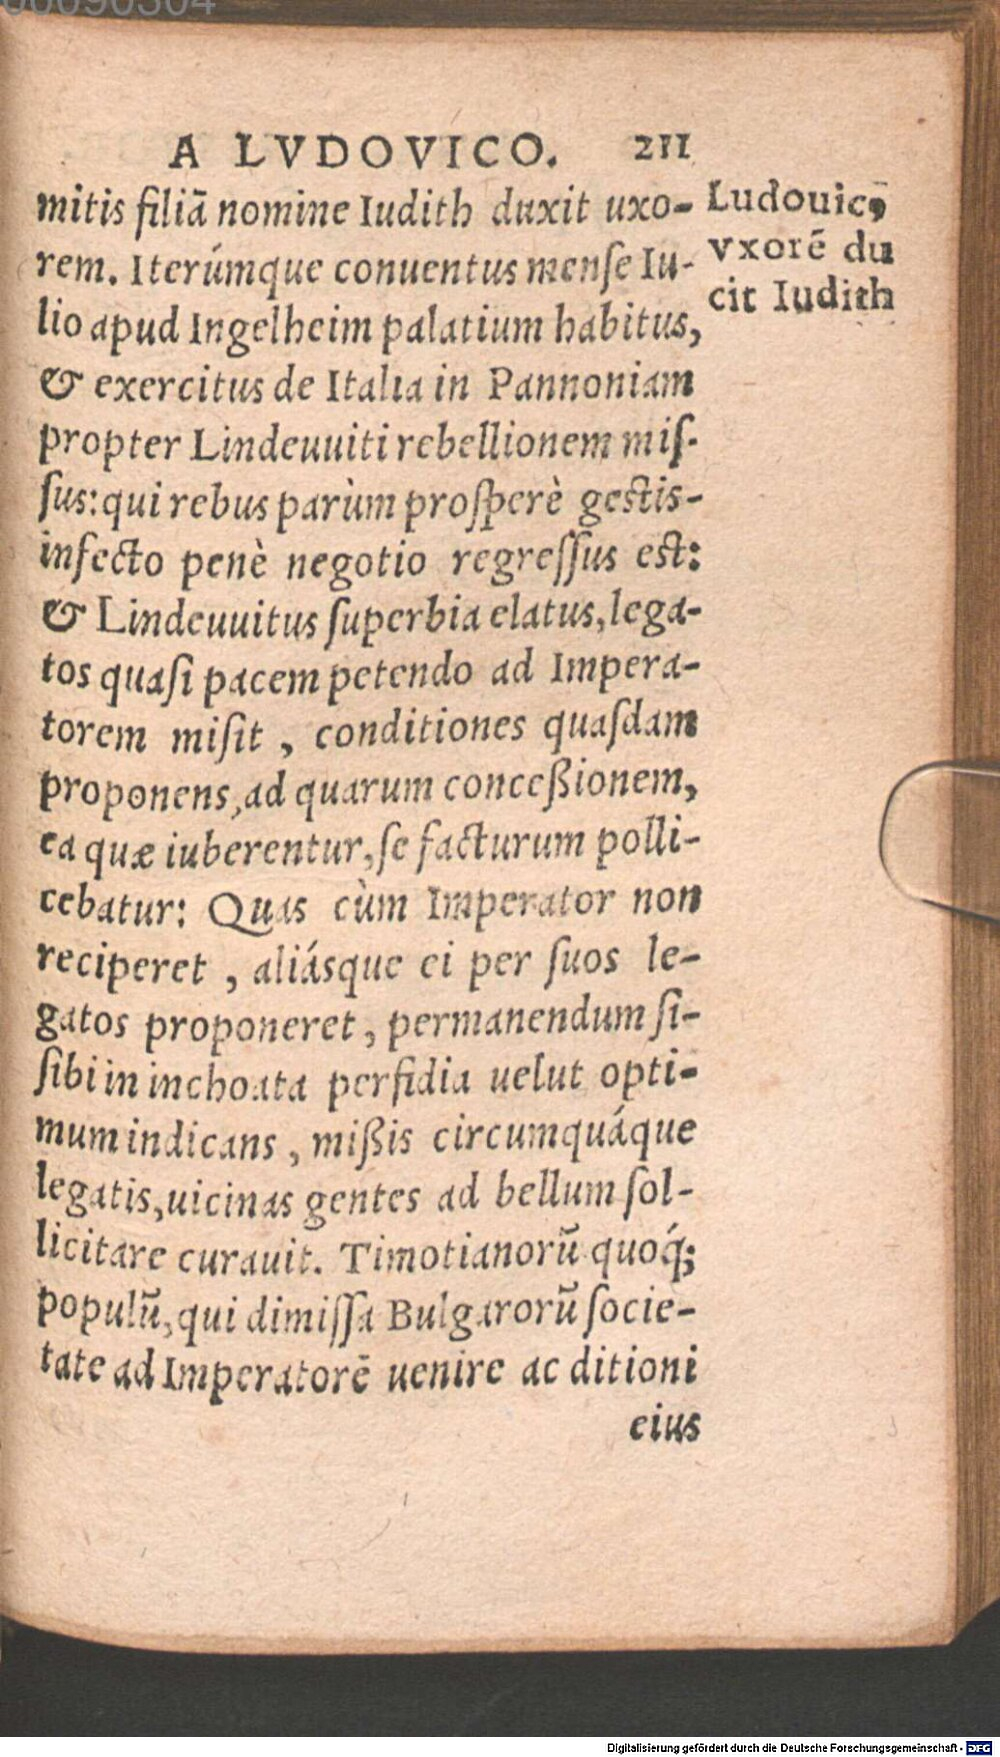 00690304
A LVDOVICO. 211
mitis filiā nomine Iudith duxit uxo-
rem. Iterúmque conuentus mense Iu-
lio apud Ingelheim palatium habitus,
& exercitus de Italia in Pannoniam
propter Lindeuuiti rebellionem miſ-
ſus: qui rebus parùm proſperè gestis-
infecto penè negotio regreſſus est:
& Lindeuuitus ſuperbia elatus, lega-
tos quaſi pacem petendo ad Impera-
torem miſit, conditiones quaſdam
proponens, ad quarum conceßionem,
ea quæ iuberentur, ſe facturum polli-
cebatur: Quas cùm Imperator non
reciperet, aliásque ei per ſuos le-
gatos proponeret, permanendum ſi-
ſibi in inchoata perfidia uelut opti-
mum indicans, mißis circumquáque
legatis, uicinas gentes ad bellum ſol-
licitare curauit. Timotianorū quoq́;
populū, qui dimiſſa Bulgarorū ſocie-
tate ad Imperatorē uenire ac ditioni
eius
Ludouicꝰ
vxorē du
cit Iudith
Digitalisierung gefördert durch die Deutsche Forschungsgemeinschaft - DFG